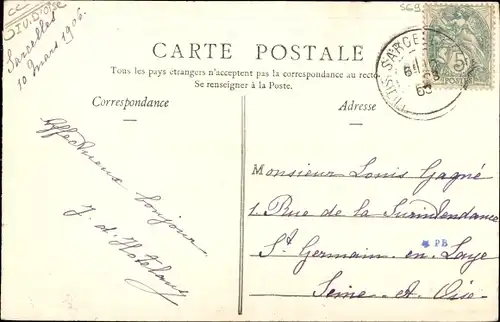 CC
S.I.V.D'Oise
Sarcelles
10 mars 1906.
CARTE POSTALE
Tous les pays étrangers n'acceptent pas la correspondance au recto
Se renseigner à la Poste.
Correspondance
Adresse
Affectueux bonjour
J. d'
Monsieur Louis Gagné
1. Rue de la Surintendance
St Germain en Laye
PB
Seine et Oise
SARCE
5c
POSTES